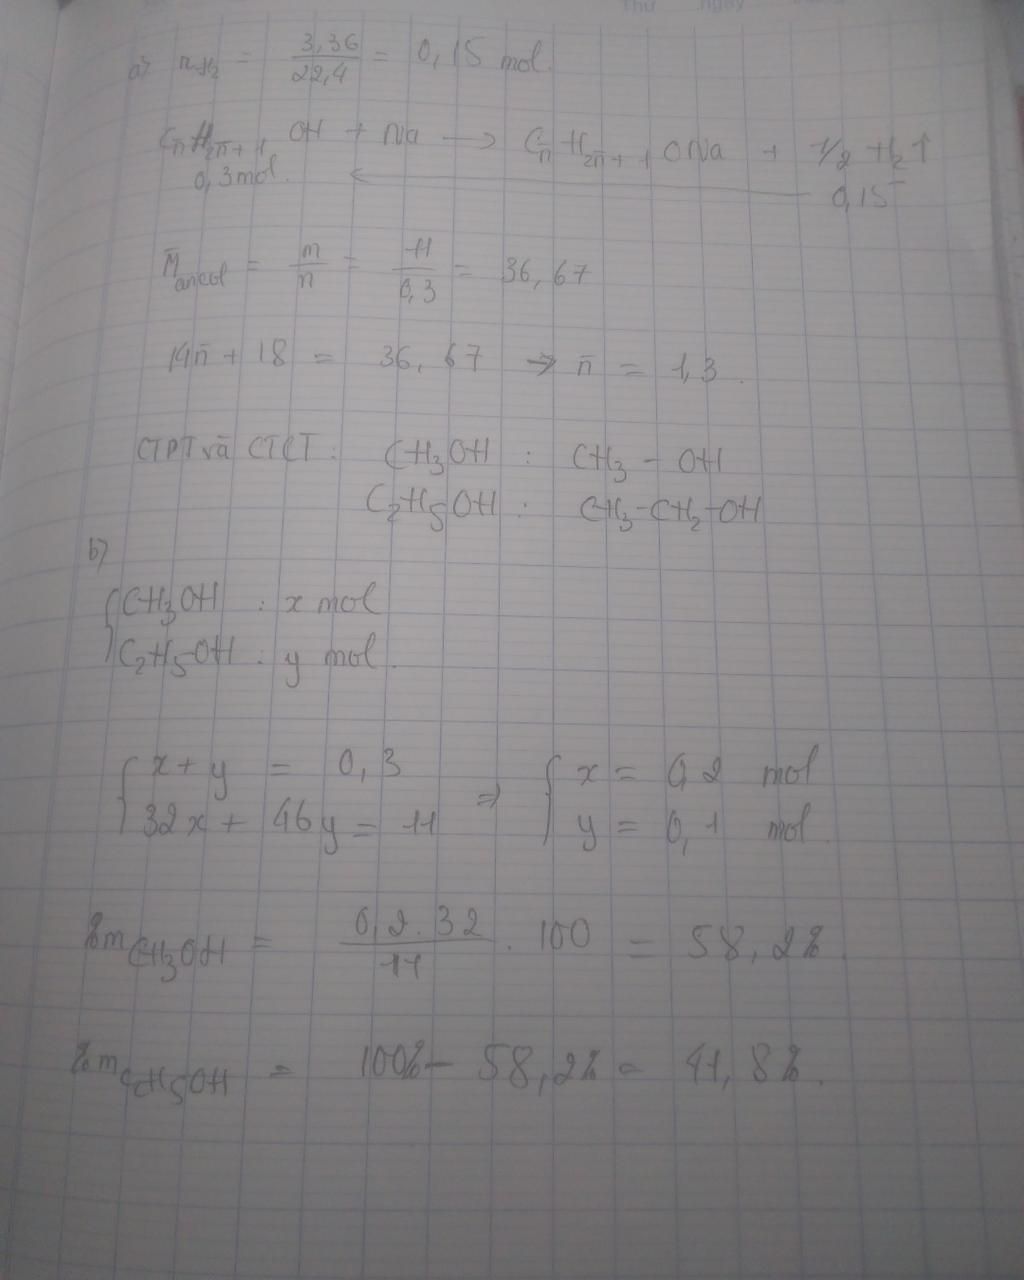 Thứ ngày
a) nH₂ = 3,36/22,4 = 0,15 mol.
Cn̄H₂n̄+1OH + Na → Cn̄H₂n̄+1ONa + 1/2 H₂↑
0,3mol. ← 0,15
M̄ancol = m/n = 11/0,3 = 36,67
14n̄ + 18 = 36,67 → n̄ = 1,3.
CTPT và CTCT: CH₃OH : CH₃ - OH
C₂H₅OH : CH₃-CH₂-OH
b)
{ CH₃OH : x mol
C₂H₅OH : y mol.
{ x + y = 0,3 ⇒ { x = 0,2 mol
32x + 46y = 11 y = 0,1 mol.
%mCH₃OH = 0,2.32/11 . 100 = 58,2%.
%mC₂H₅OH = 100% - 58,2% = 41,8%.